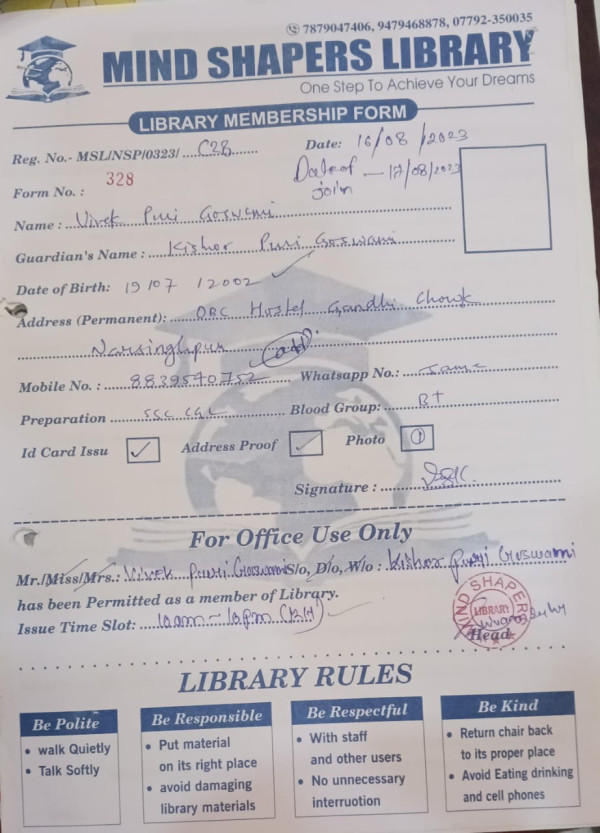 7879047406, 9479468878, 07792-350035
MIND SHAPERS LIBRARY
One Step To Achieve Your Dreams
LIBRARY MEMBERSHIP FORM
Reg. No.- MSL/NSP/0323/ C28 Date: 16/08/2023
Form No. : 328 Date of join - 17/08/2023
Name : Vivek Puri Goswami
Guardian's Name : Kishor Puri Goswami
Date of Birth: 19/07/2002
Address (Permanent): OBC Hostel Gandhi Chowk
Narsinghpur
Mobile No. : 8839570752 Whatsapp No.: Same
Preparation SSC CGL Blood Group: B+
Id Card Issu Address Proof Photo 1
Signature :
For Office Use Only
Mr./Miss/Mrs.: Vivek Puri Goswami S/o, D/o, W/o : Kishor Puri Goswami
has been Permitted as a member of Library.
Issue Time Slot: 10am - 10pm
MIND SHAPERS
LIBRARY
Head
LIBRARY RULES
Be Polite
• walk Quietly
• Talk Softly
Be Responsible
• Put material
on its right place
• avoid damaging
library materials
Be Respectful
• With staff
and other users
• No unnecessary
interruotion
Be Kind
• Return chair back
to its proper place
• Avoid Eating drinking
and cell phones